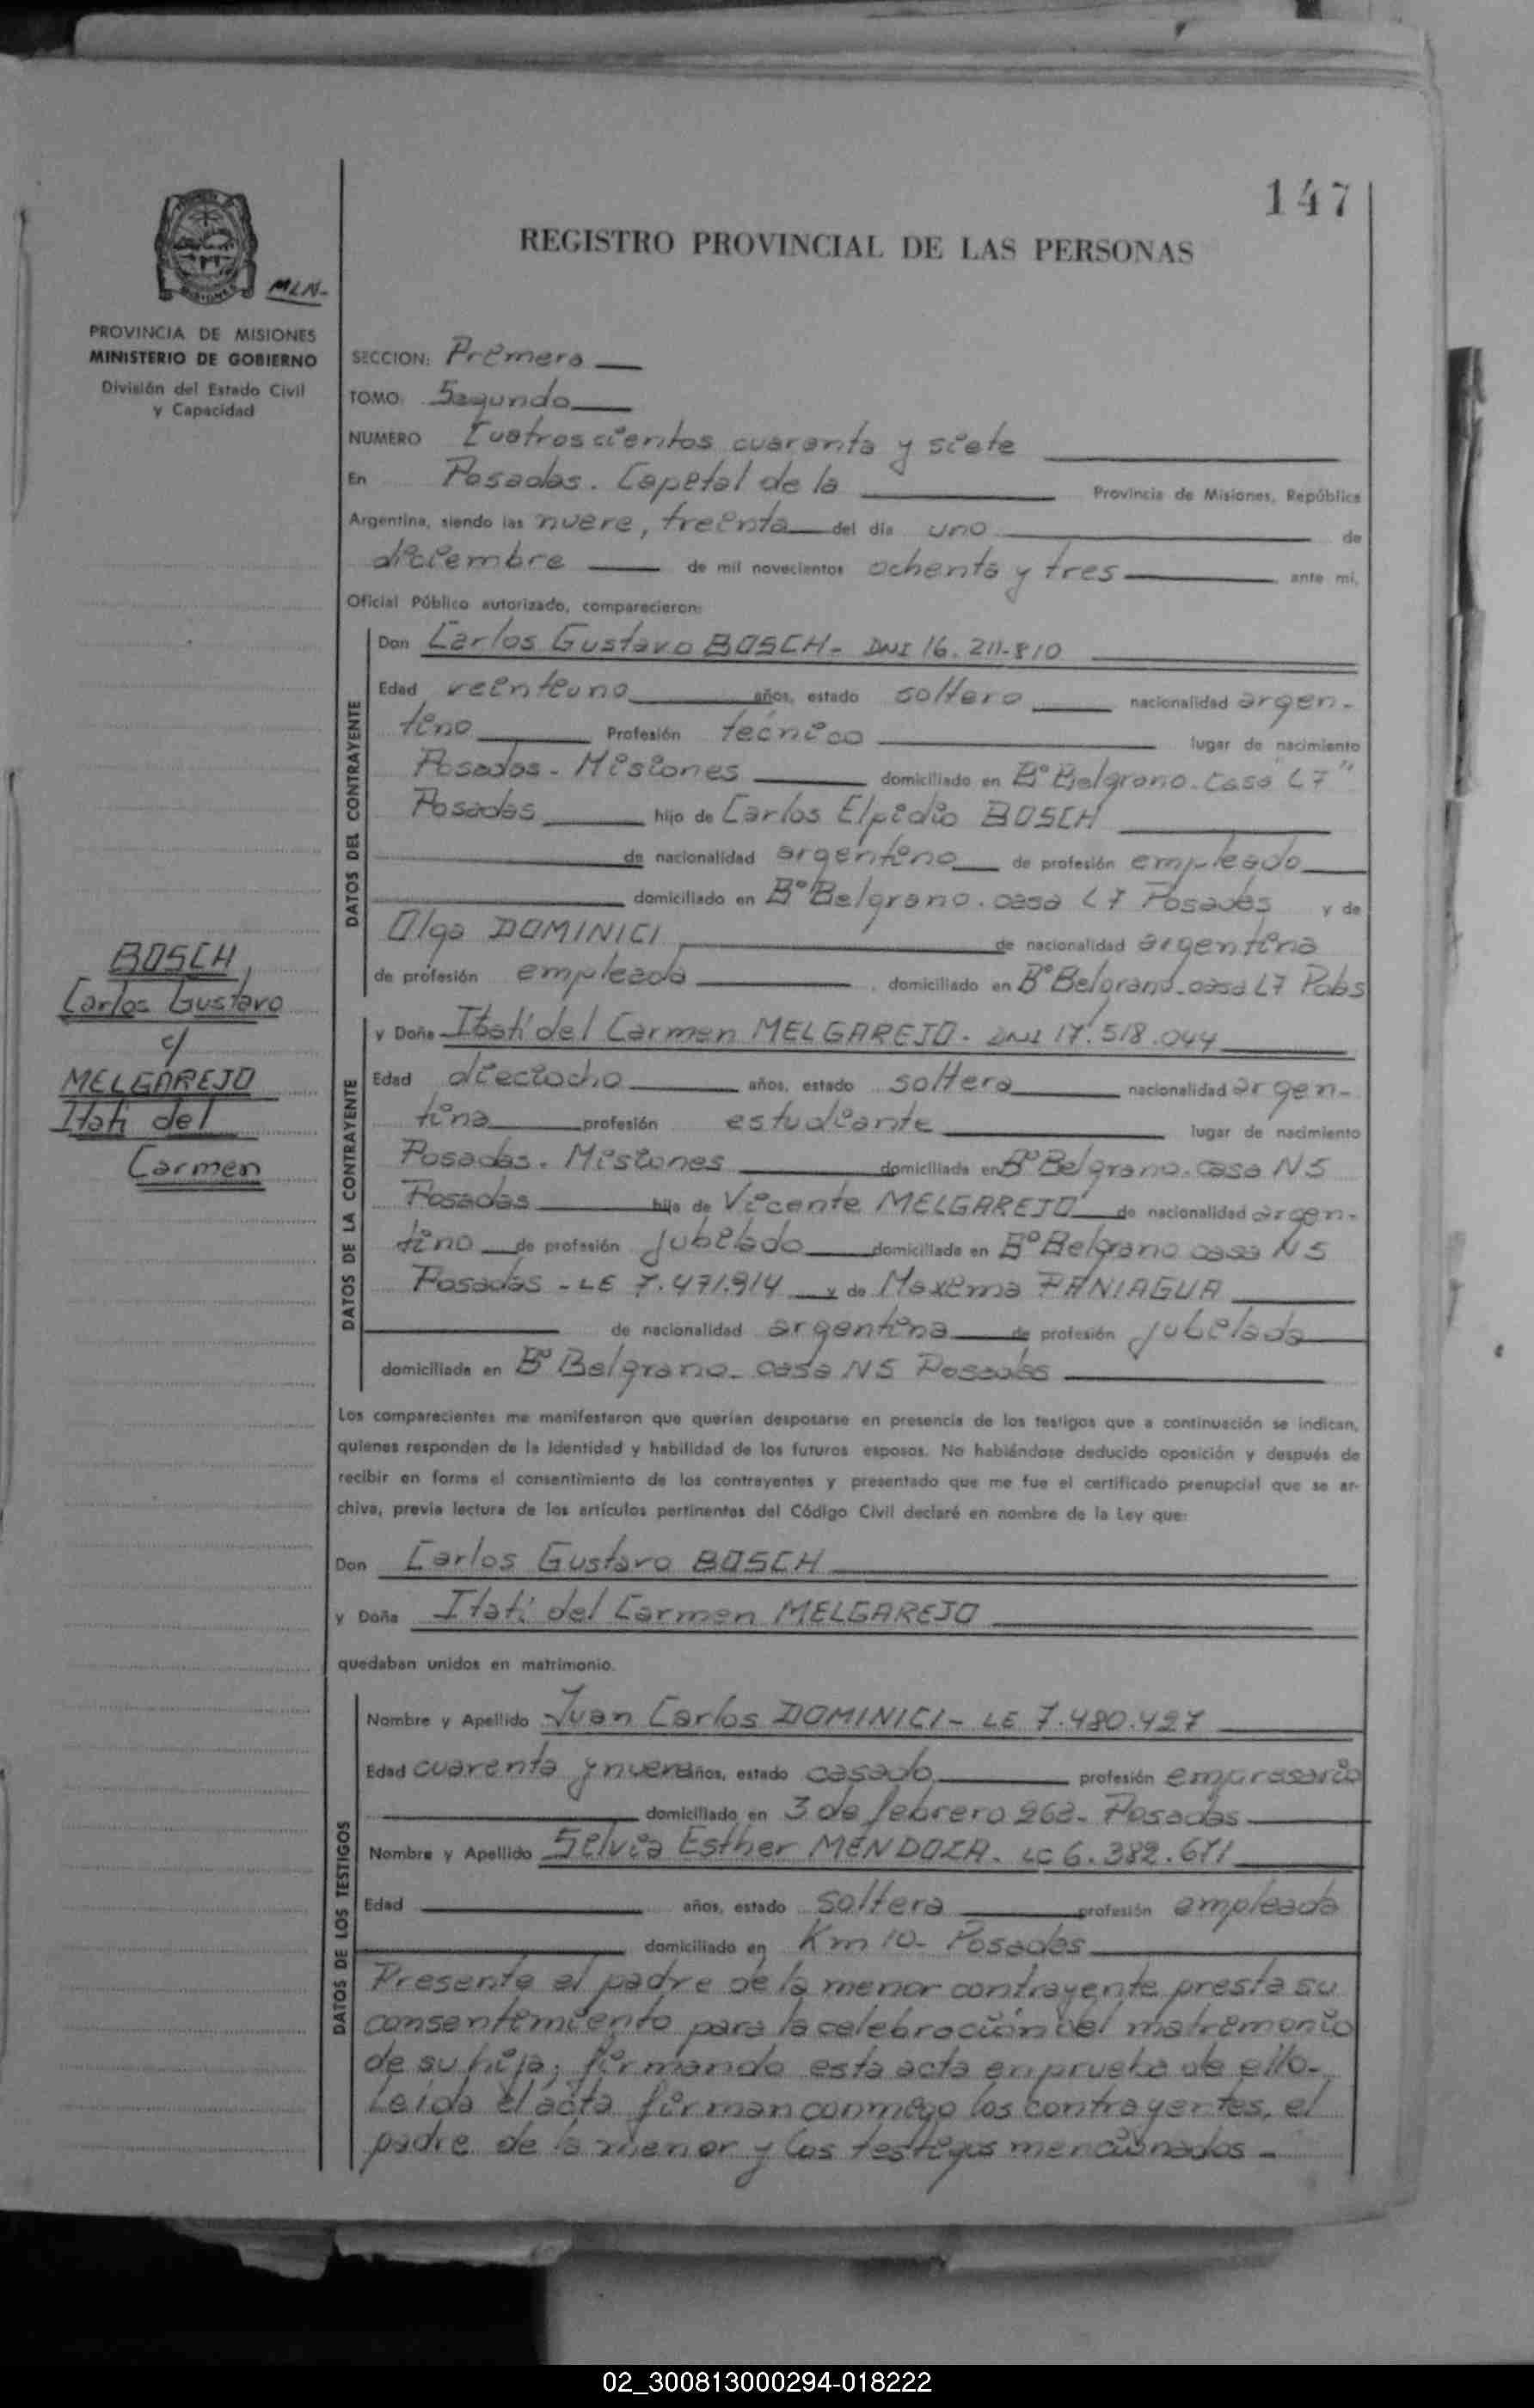 147
REGISTRO PROVINCIAL DE LAS PERSONAS
MISIONES
MLN-
PROVINCIA DE MISIONES
MINISTERIO DE GOBIERNO
División del Estado Civil
y Capacidad
SECCION: Primera
TOMO: Segundo
NUMERO Cuatroscientos cuarenta y siete
En Posadas. Capital de la Provincia de Misiones, República
Argentina, siendo las nueve, treinta del día uno de
diciembre de mil novecientos ochenta y tres ante mi,
Oficial Público autorizado, comparecieron:
DATOS DEL CONTRAYENTE
Don Carlos Gustavo BOSCH - DNI 16.211.810
Edad veintiuno años, estado soltero nacionalidad argen-
tino Profesión técnico lugar de nacimiento
Posadas - Misiones domiciliado en Bº Belgrano. casa "L7"
Posadas hijo de Carlos Elpidio BOSCH
de nacionalidad argentino de profesión empleado
domiciliado en Bº Belgrano. casa L7 Posadas y de
Olga DOMINICI de nacionalidad argentina
de profesión empleada, domiciliado en Bº Belgrano. casa L7 Pdas
BOSCH,
Carlos Gustavo
c/
MELGAREJO
Itati del
Carmen
DATOS DE LA CONTRAYENTE
y Doña Itatí del Carmen MELGAREJO - DNI 17.518.044
Edad dieciocho años, estado soltera nacionalidad argen-
tina profesión estudiante lugar de nacimiento
Posadas. Misiones domiciliada en Bº Belgrano. casa N5
Posadas hija de Vicente MELGAREJO de nacionalidad argen-
tino de profesión jubilado domiciliado en Bº Belgrano casa N5
Posadas - LE 7.471.914 y de Maxima PANIAGUA
de nacionalidad argentina de profesión jubilada
domiciliada en Bº Belgrano - casa N5 Posadas
Los comparecientes me manifestaron que querían desposarse en presencia de los testigos que a continuación se indican,
quienes responden de la identidad y habilidad de los futuros esposos. No habiéndose deducido oposición y después de
recibir en forma el consentimiento de los contrayentes y presentado que me fue el certificado prenupcial que se ar-
chiva, previa lectura de los artículos pertinentes del Código Civil declaré en nombre de la Ley que:
Don Carlos Gustavo BOSCH
y Doña Itatí del Carmen MELGAREJO
quedaban unidos en matrimonio.
DATOS DE LOS TESTIGOS
Nombre y Apellido Juan Carlos DOMINICI - LE 7.480.427
Edad cuarenta y nueve años, estado casado profesión empresario
domiciliado en 3 de febrero 262 - Posadas
Nombre y Apellido Silvia Esther MENDOZA - LC 6.382.671
Edad años, estado soltera profesión empleada
domiciliado en Km 10 - Posadas
Presente el padre de la menor contrayente presta su
consentimiento para la celebración del matrimonio
de su hija; firmando esta acta en prueba de ello.-
Leída el acta firman conmigo los contrayentes, el
padre de la menor y los testigos mencionados -
02_300813000294-018222